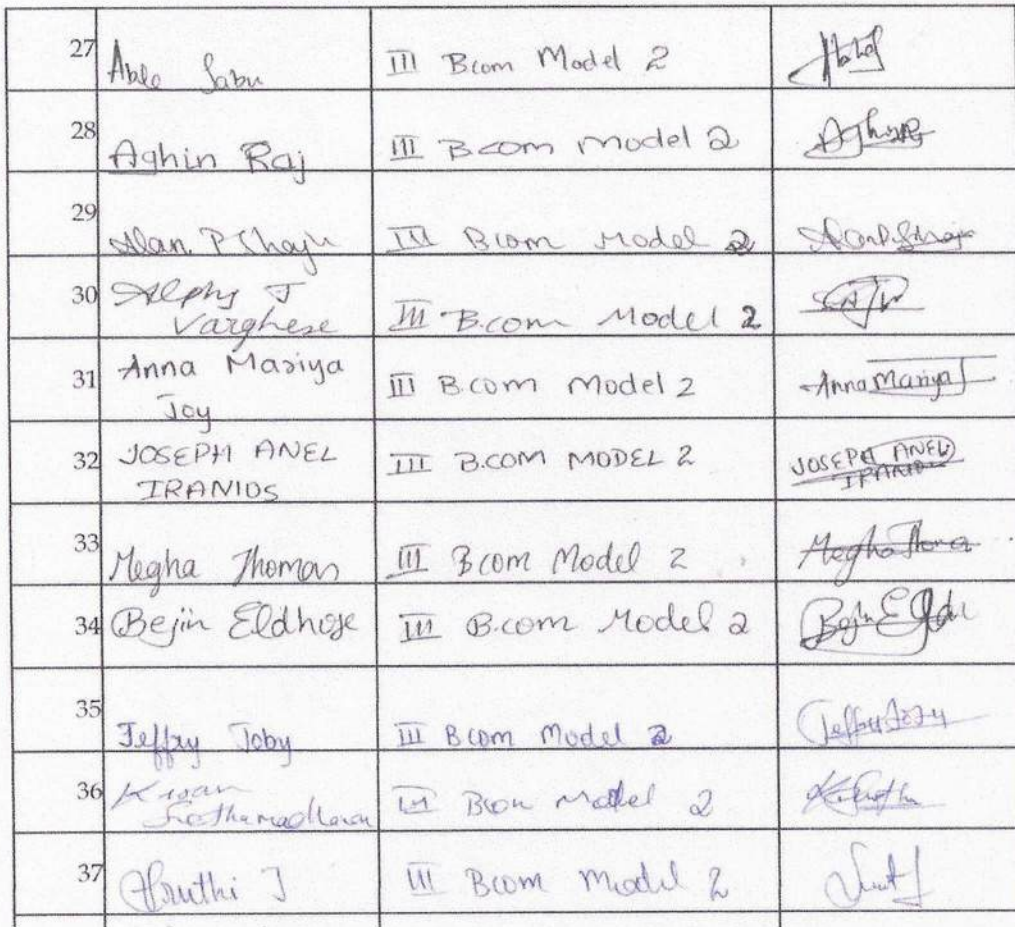 27 Able Sabu III Bcom Model 2
28 Aghin Raj III B.com model 2
29 Alan P Shaju III Bcom Model 2
30 Alphy J
Varghese III B.com Model 2
31 Anna Mariya
Joy III B.com Model 2 Anna Mariya J
32 JOSEPH ANEL
IRANIOS III B.COM MODEL 2 JOSEPH ANEL
IRANIOS
33 Megha Thomas III Bcom Model 2 Megha Thomas
34 Bejin Eldhose III B.com Model 2
35 Jeffry Toby III Bcom Model 2
36 Kiran III Bcom Model 2
37 Sruthi J III Bcom Model 2